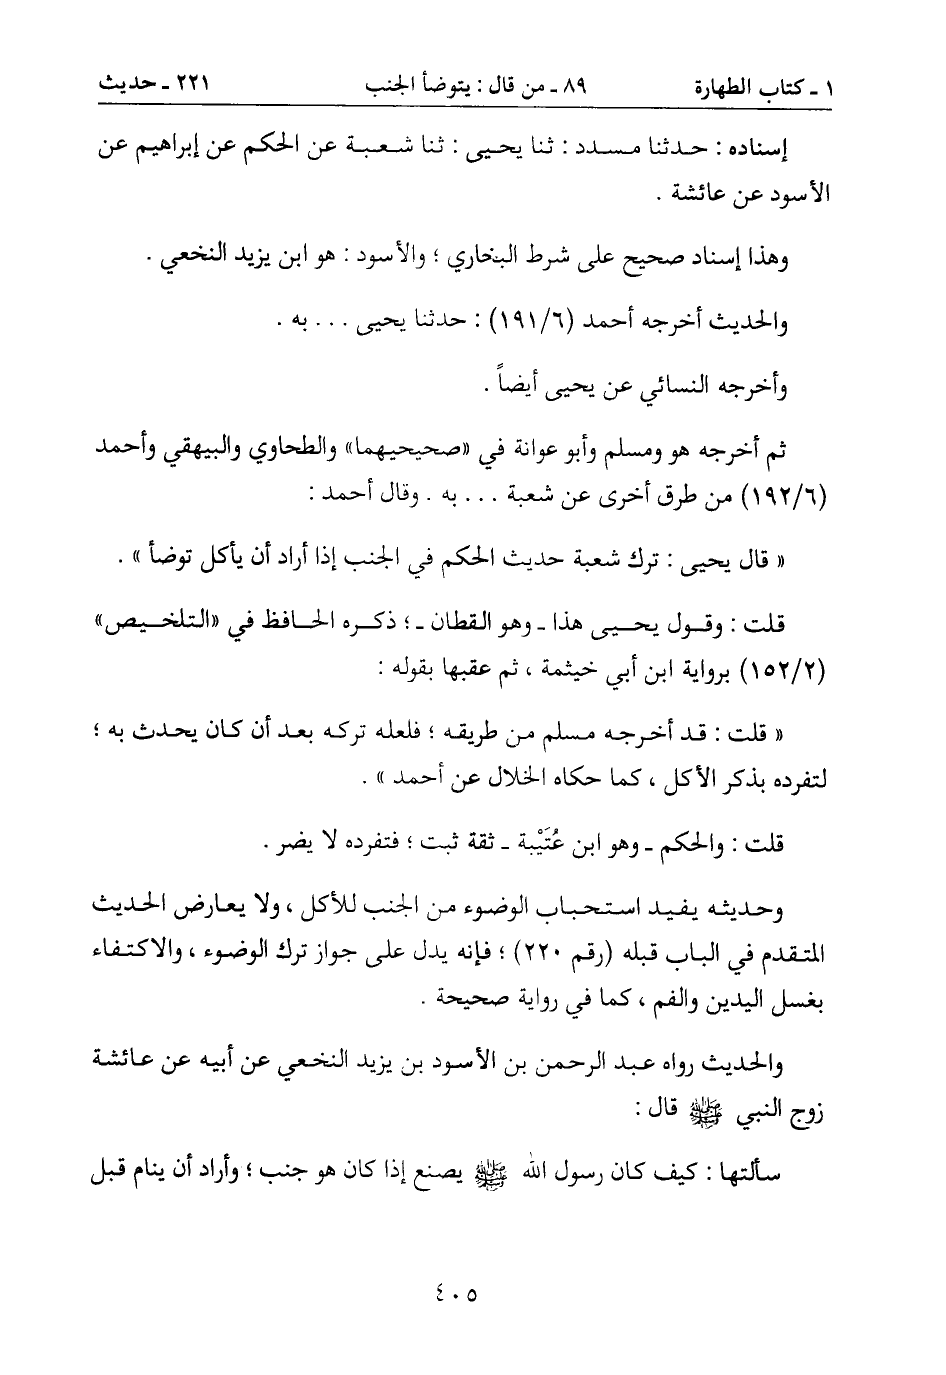 ١ ـ كتاب الطهارة ٨٩ ـ من قال : يتوضأ الجنب ٢٢١ ـ حديث
إسناده : حدثنا مسدد : ثنا يحيى : ثنا شعبة عن الحكم عن إبراهيم عن
الأسود عن عائشة .
وهذا إسناد صحيح على شرط البخاري ؛ والأسود : هو ابن يزيد النخعي .
والحديث أخرجه أحمد (١٩١/٦) : حدثنا يحيى . . . به .
وأخرجه النسائي عن يحيى أيضاً .
ثم أخرجه هو ومسلم وأبو عوانة في «صحيحيهما» والطحاوي والبيهقي وأحمد
(١٩٢/٦) من طرق أخرى عن شعبة . . . به . وقال أحمد :
« قال يحيى : ترك شعبة حديث الحكم في الجنب إذا أراد أن يأكل توضأ » .
قلت : وقول يحيى هذا ـ وهو القطان ـ ؛ ذكره الحافظ في «التلخيص»
(١٥٢/٢) برواية ابن أبي خيثمة ، ثم عقبها بقوله :
« قلت : قد أخرجه مسلم من طريقه ؛ فلعله تركه بعد أن كان يحدث به ؛
لتفرده بذكر الأكل ، كما حكاه الخلال عن أحمد » .
قلت : والحكم ـ وهو ابن عُتَيْبة ـ ثقة ثبت ؛ فتفرده لا يضر .
وحديثه يفيد استحباب الوضوء من الجنب للأكل ، ولا يعارض الحديث
المتقدم في الباب قبله (رقم ٢٢٠) ؛ فإنه يدل على جواز ترك الوضوء ، والاكتفاء
بغسل اليدين والفم ، كما في رواية صحيحة .
والحديث رواه عبد الرحمن بن الأسود بن يزيد النخعي عن أبيه عن عائشة
زوج النبي ﷺ قال :
سألتها : كيف كان رسول الله ﷺ يصنع إذا كان هو جنب ؛ وأراد أن ينام قبل
٤٠٥